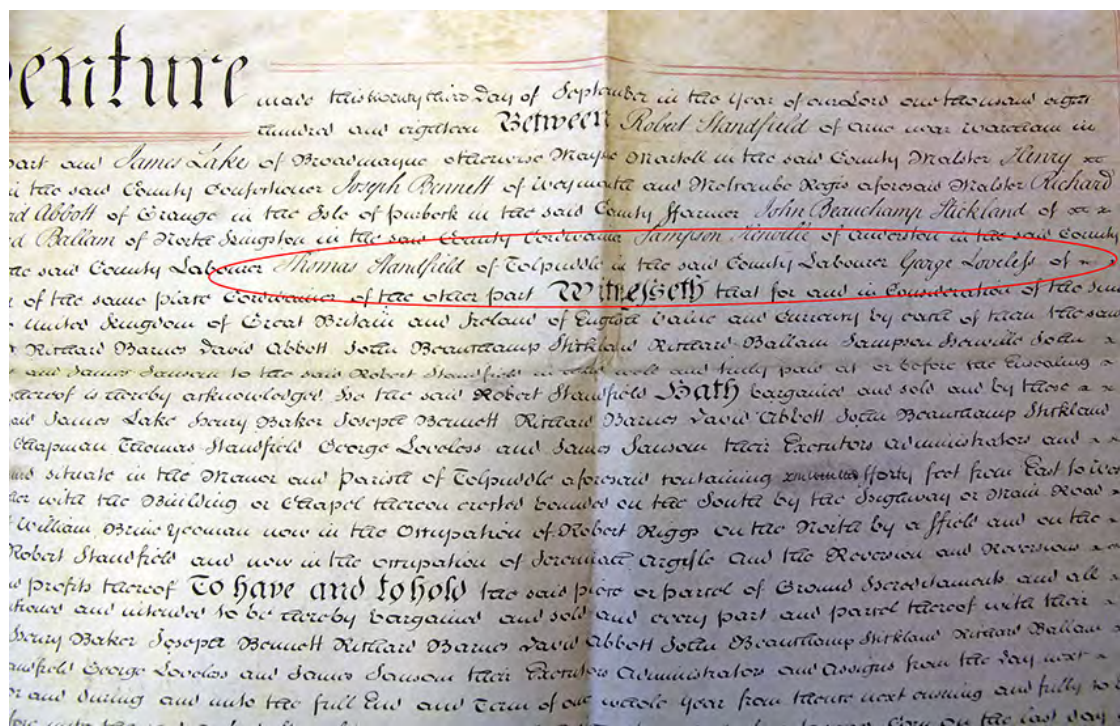 enture made this twenty third Day of September in the Year of our Lord one thousand eight
hundred and eighteen Between Robert Standfield of Arne near Wareham in
part and James Lake of Broadmayne otherwise Mayne Martell in the said County Malster Henry
in the said County Confectioner Joseph Bennett of Weymouth and Melcombe Regis aforesaid Malster Richard
Abbott of Grange in the Isle of purbeck in the said County ffarmer John Beauchamp Stickland of
Ballam of North in the said County Cordwainer Sampson of Anderston in the said County
the said County Labourer Thomas Standfield of Tolpuddle in the said County Labourer George Loveless of
of the same place Cordwainer of the other part Witnesseth that for and in Consideration of the sum
United Kingdom of Great Britain and Ireland of English Value and Currency by each of them the said
Richard Barnes David Abbott John Beauchamp Stickland Richard Ballam Sampson John
and James Sansom to the said Robert Standfield in well and truly paid at or before the Ensealing
thereof is hereby acknowledged He the said Robert Standfield Hath bargained and sold and by these
said James Lake Henry Baker Joseph Bennett Richard Barnes David Abbott John Beauchamp Stickland
Chapman Thomas Standfield George Loveless and James Sansom their Executors administrators and
situate in the Manor and Parish of Tolpuddle aforesaid containing fforty feet from East to
with the Building or Chapel thereon erected bounded on the South by the Highway or Main Road
William Brine Yeoman now in the Occupation of Robert Riggs on the North by a ffield and on the
Robert Standfield and now in the occupation of Jeremiah Argyle And the Reversion and Reversions
profits thereof To have and to hold the said piece or parcel of Ground Hereditaments and all
and intended to be hereby bargained and sold and every part and parcel thereof with their
Henry Baker Joseph Bennett Richard Barnes David Abbott John Beauchamp Stickland Richard Ballam
George Loveless and James Sansom their Executors Administrators and Assigns from the day next
and during and unto the full End and Term of one whole Year from thence next ensuing and fully to